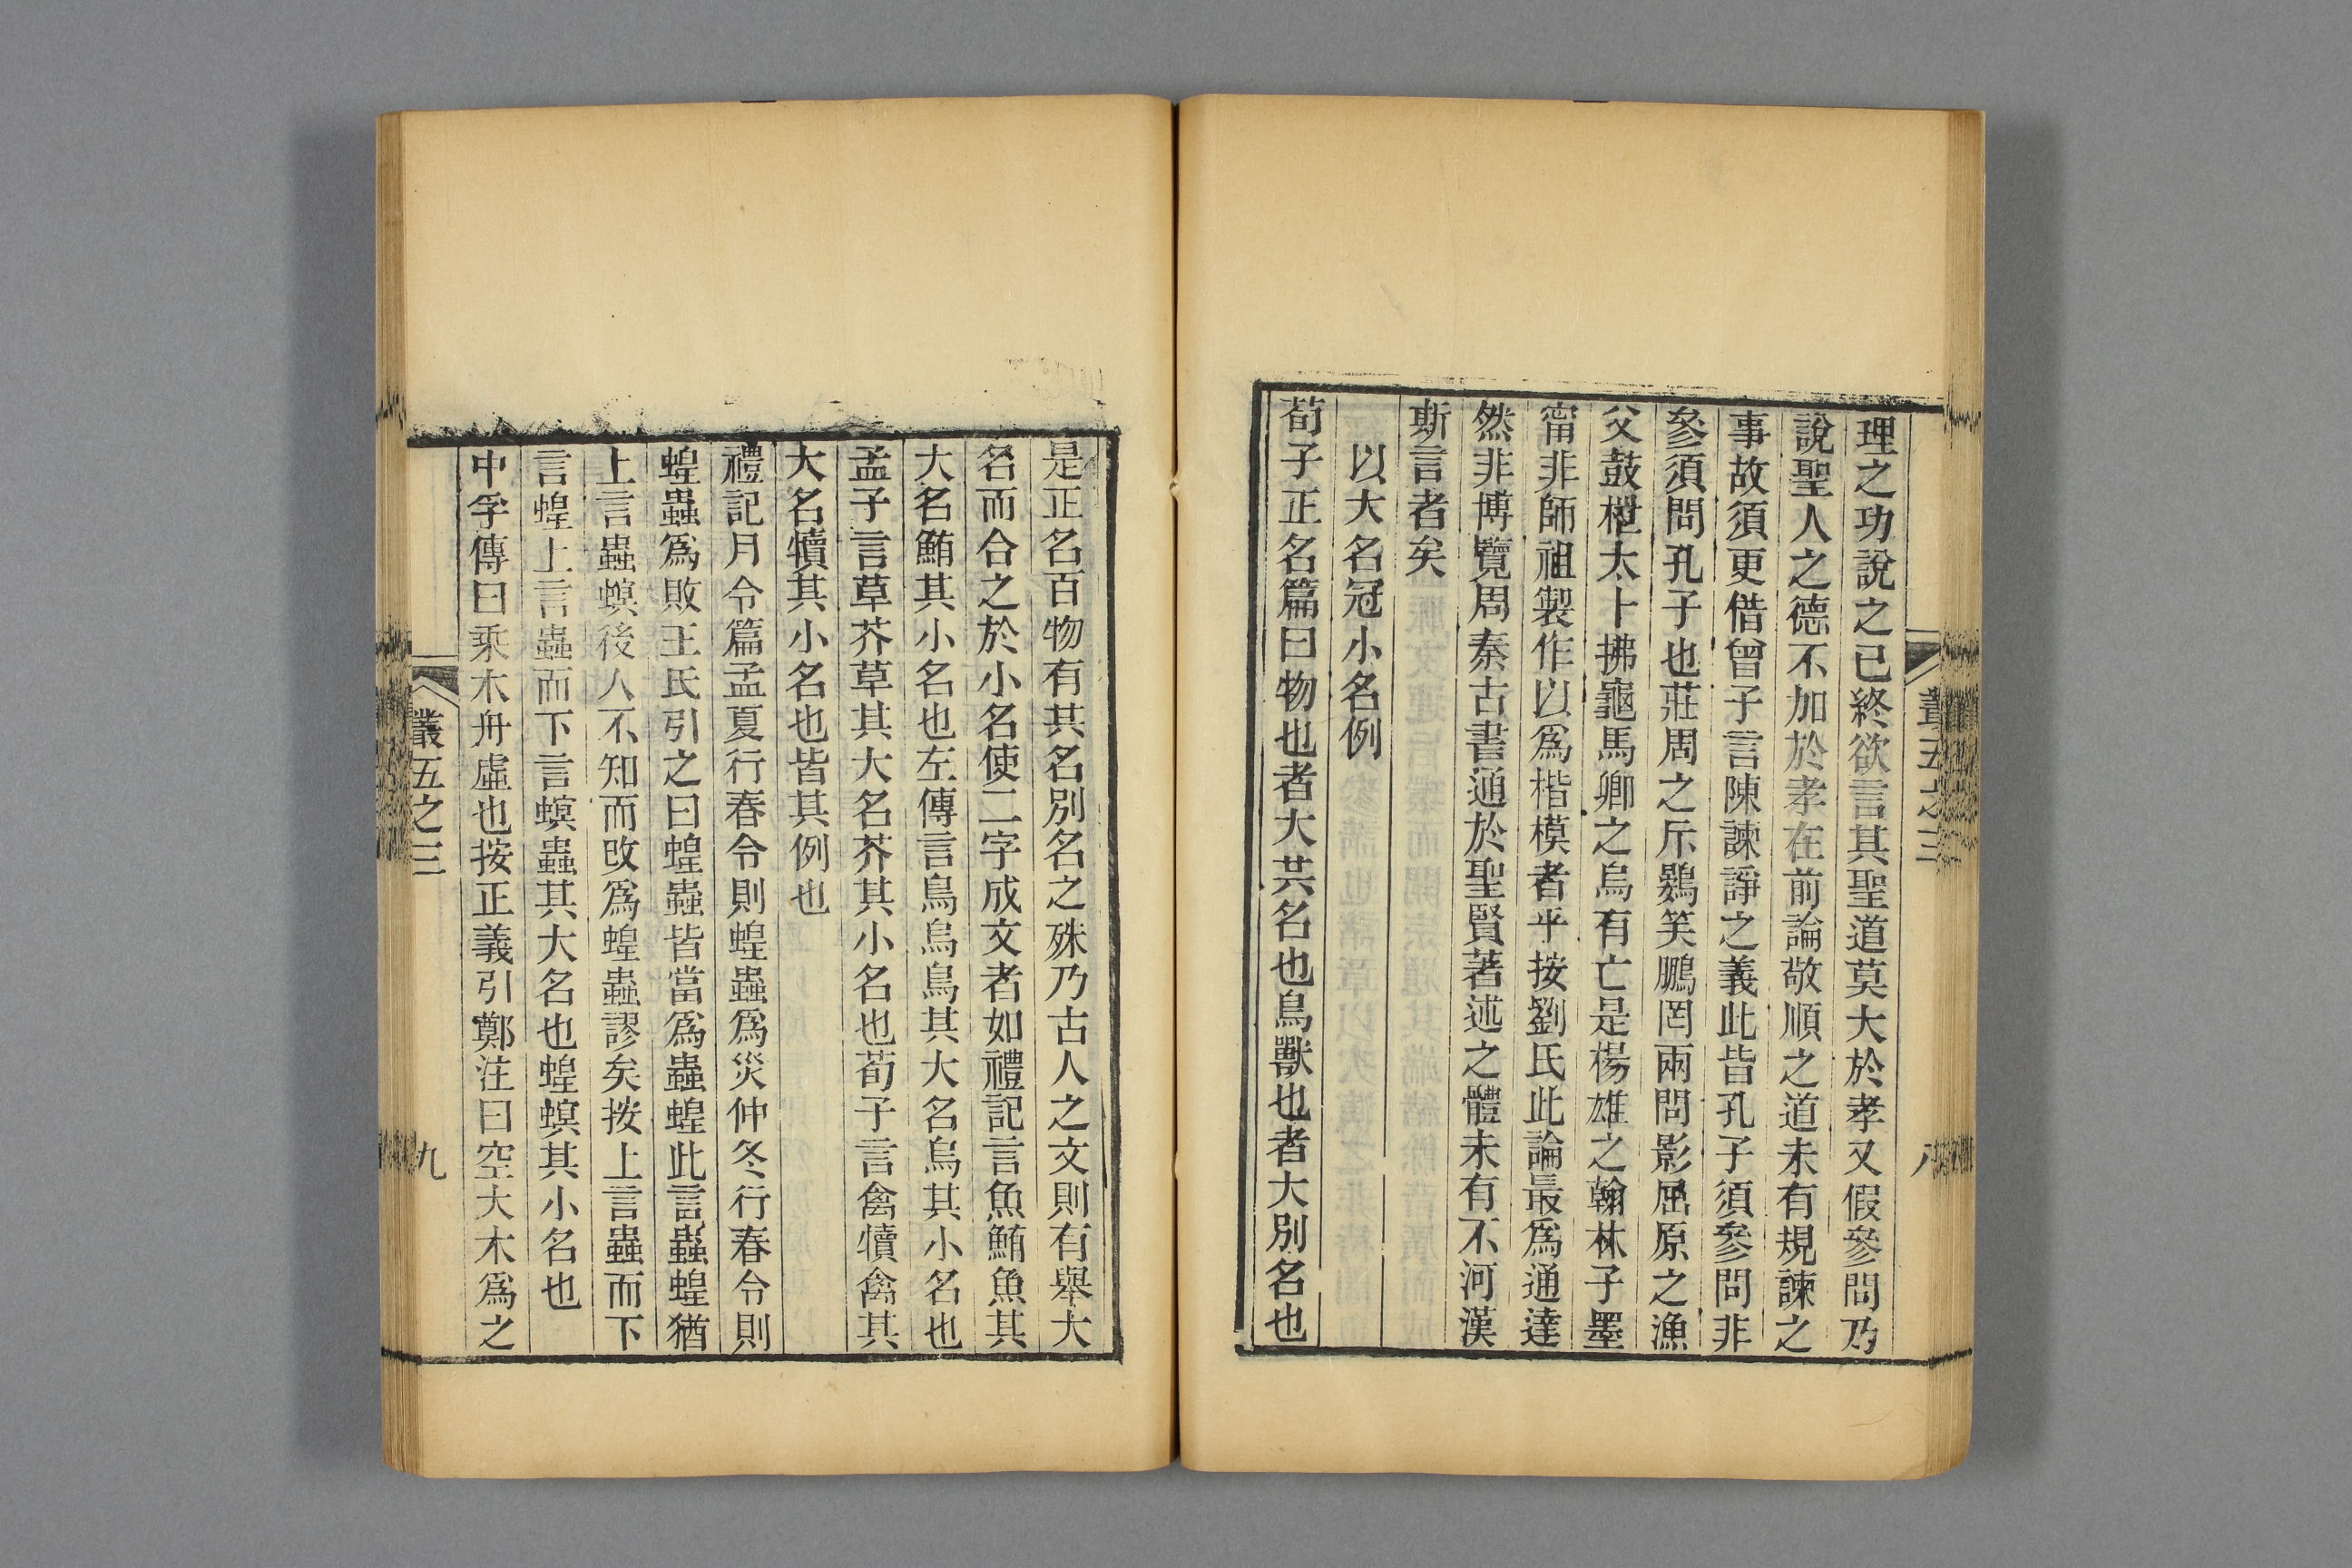 理之功說之已終欲言其聖道莫大於孝又假參問乃
說聖人之德不加於孝在前論敬順之道未有規諫之
事故須更借曾子言陳諫諍之義此皆孔子須參問非
參須問孔子也莊周之斥鷃笑鵬罔兩問影屈原之漁
父鼓枻太卜拂龜馬卿之烏有亡是楊雄之翰林子墨
甯非師祖製作以爲楷模者乎按劉氏此論最爲通達
然非博覽周秦古書通於聖賢著述之體未有不河漢
斯言者矣
以大名冠小名例
荀子正名篇曰物也者大共名也鳥獸也者大別名也
是正名百物有其名別名之殊乃古人之文則有舉大
名而合之於小名使二字成文者如禮記言魚鮪魚其
大名鮪其小名也左傳言鳥烏鳥其大名烏其小名也
孟子言草芥草其大名芥其小名也荀子言禽犢禽其
大名犢其小名也皆其例也
禮記月令篇孟夏行春令則蝗蟲爲災仲冬行春令則
蝗蟲爲敗王氏引之曰蝗蟲皆當爲蟲蝗此言蟲蝗猶
上言蟲螟後人不知而改爲蝗蟲謬矣按上言蟲而下
言蝗上言蟲而下言螟蟲其大名也蝗螟其小名也
中孚傳曰乘木舟虛也按正義引鄭注曰空大木爲之
叢五之三
九